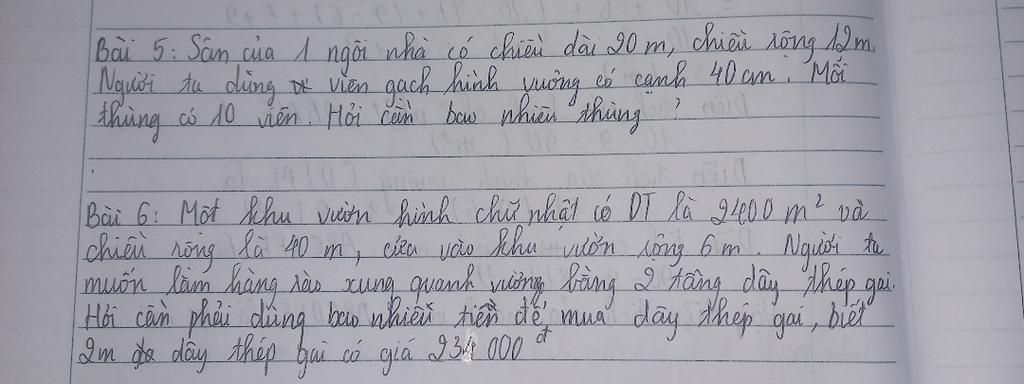 Bài 5: Sân của 1 ngôi nhà có chiều dài 20 m, chiều rộng 12 m.
Người ta dùng viên gạch hình vuông có cạnh 40 cm. Mỗi
thùng có 10 viên. Hỏi cần bao nhiêu thùng?
Bài 6: Một khu vườn hình chữ nhật có DT là 2400 m² và
chiều rộng là 40 m, cửa vào khu vườn rộng 6 m. Người ta
muốn làm hàng rào xung quanh vường bằng 2 tầng dây thép gai.
Hỏi cần phải dùng bao nhiêu tiền để mua dây thép gai, biết
2m dây thép gai có giá 234 000 đ